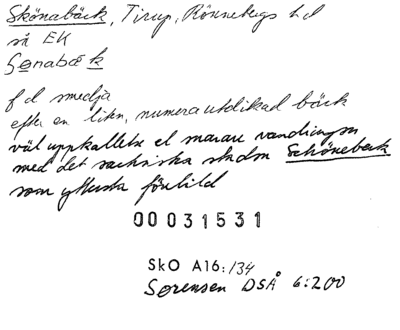 Skönabäck, Tirup, Rönnebergs hd
så EK
Sønabæk
f d smedja
efter en liten, numera utdikad bäck
väl uppkallelse el snarare vandringsn
med det sachsiska stadsn Schönebeck
som yttersta förebild
00031531
SkO A16:134
Sørensen DSÅ 6:200